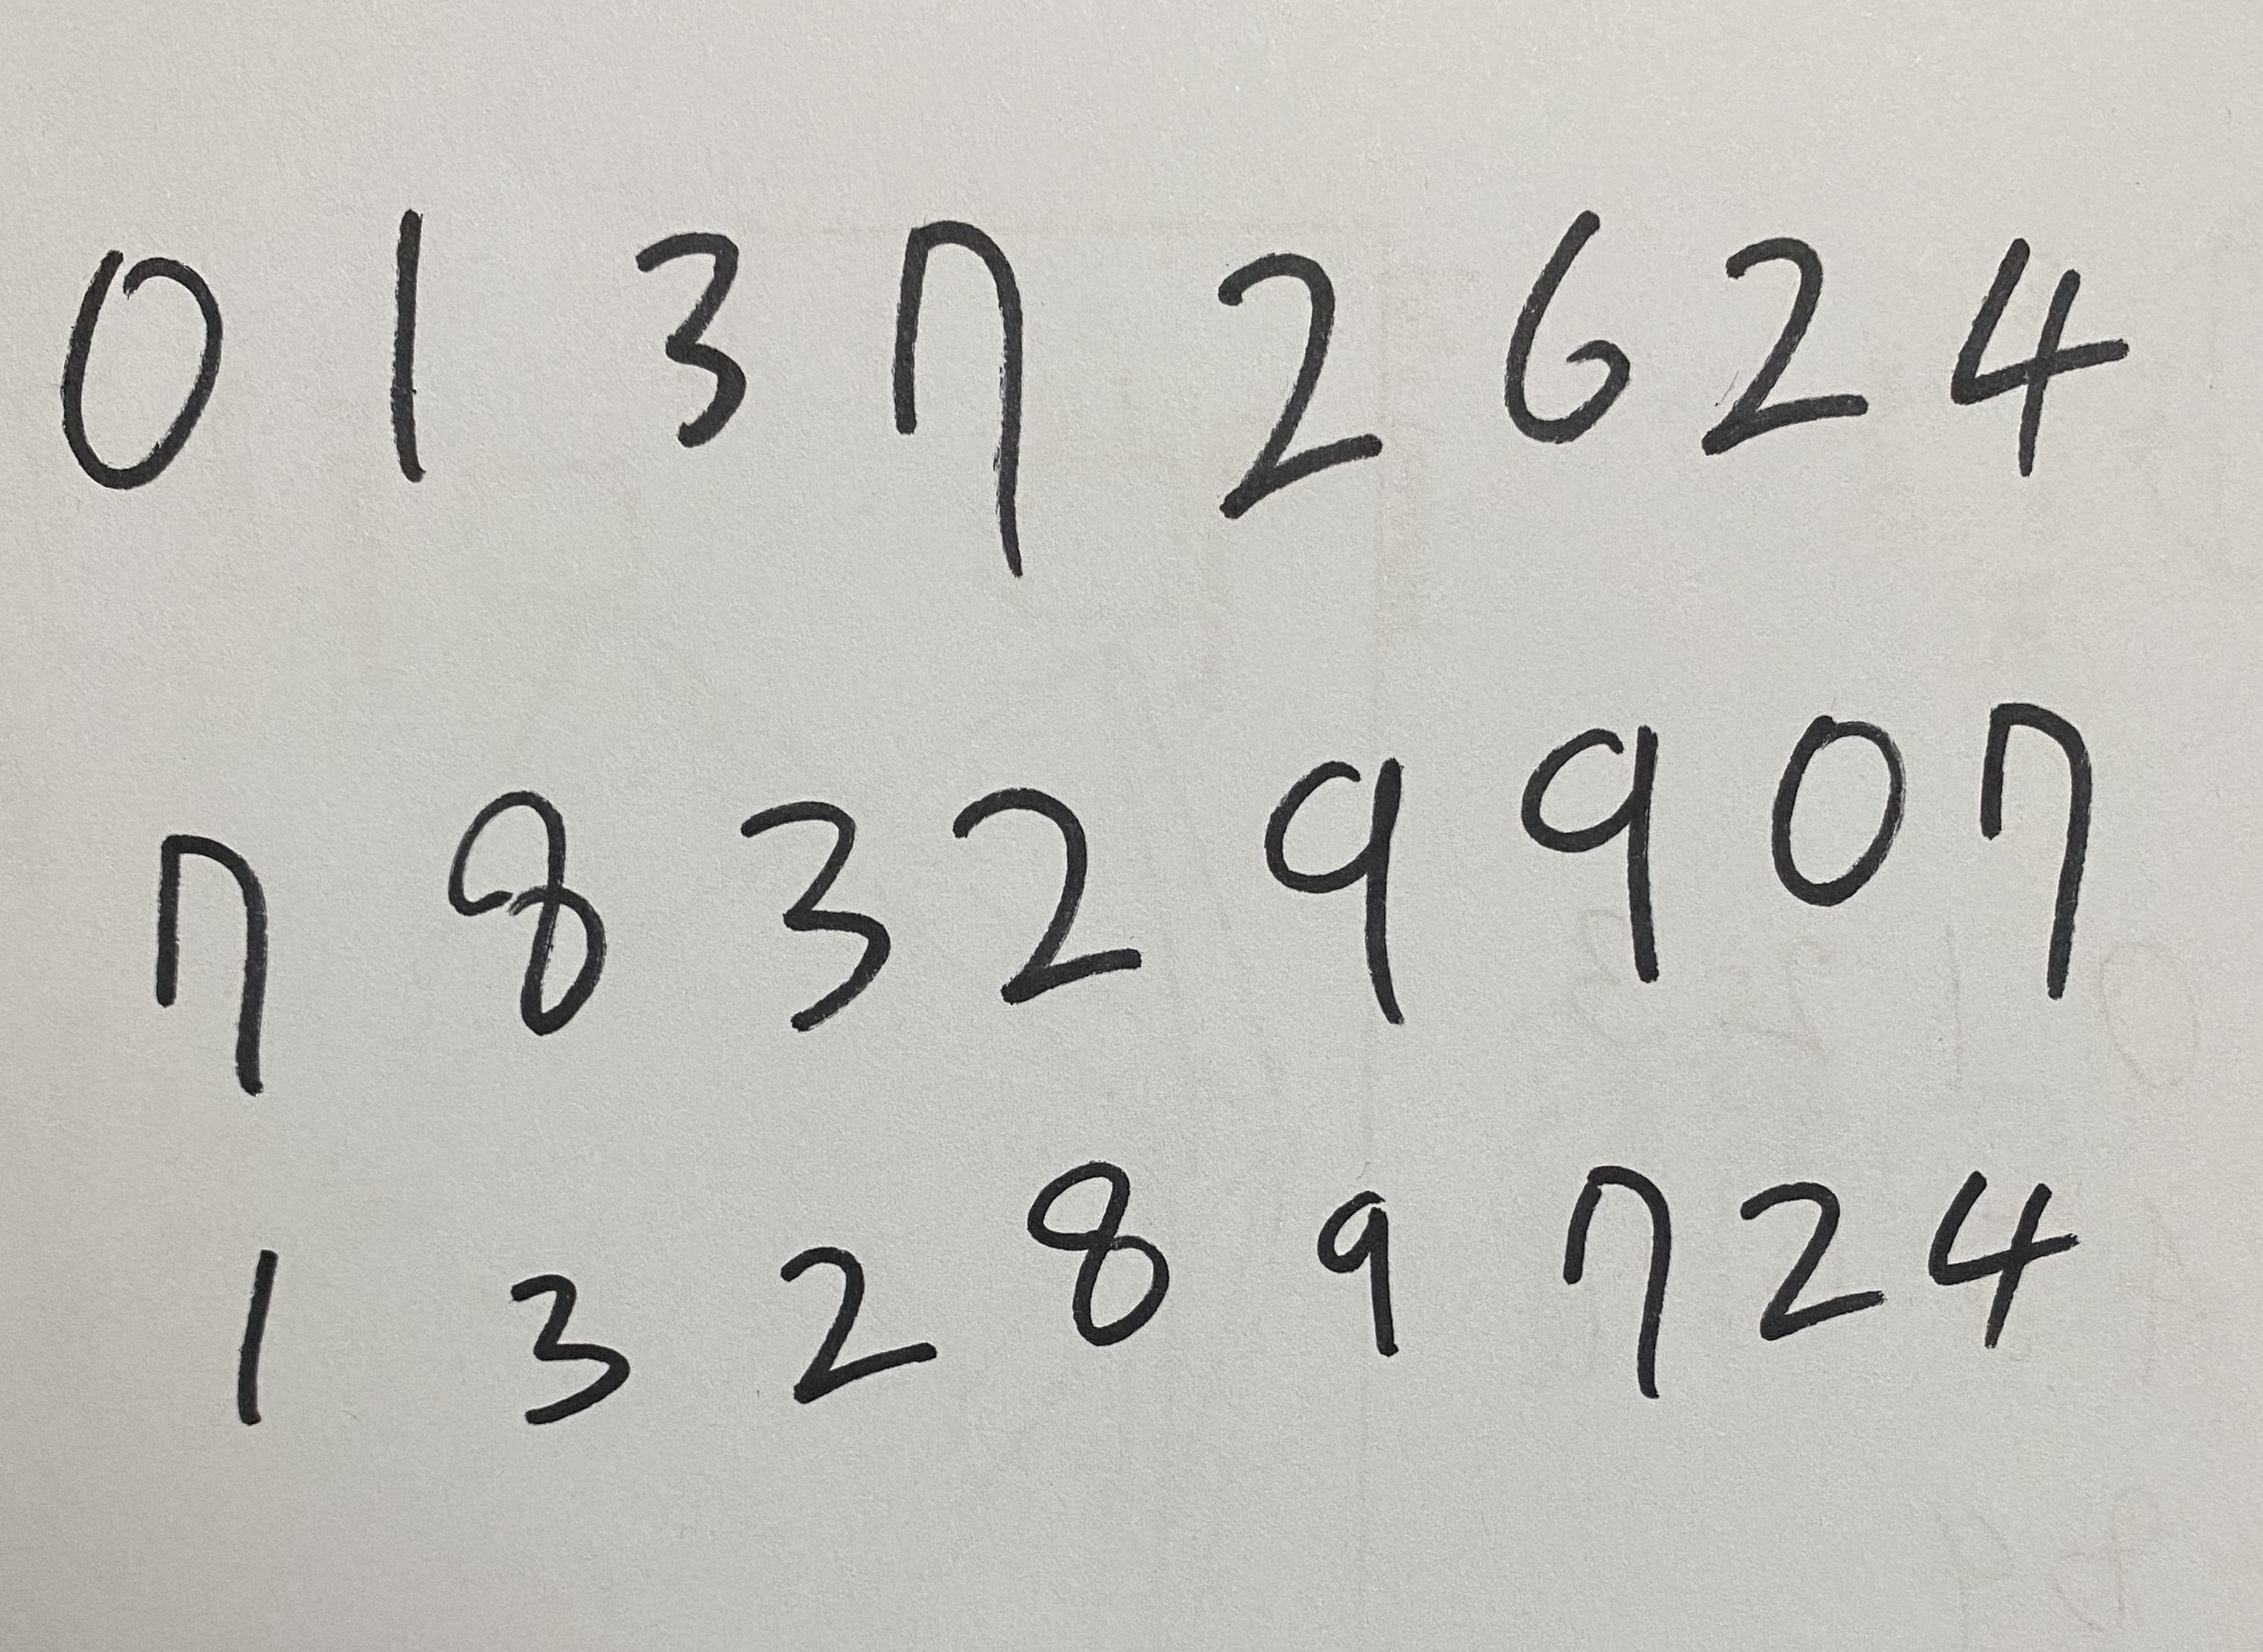 0 1 3 7 2 6 2 4
7 8 3 2 9 9 0 7
1 3 2 8 9 7 2 4